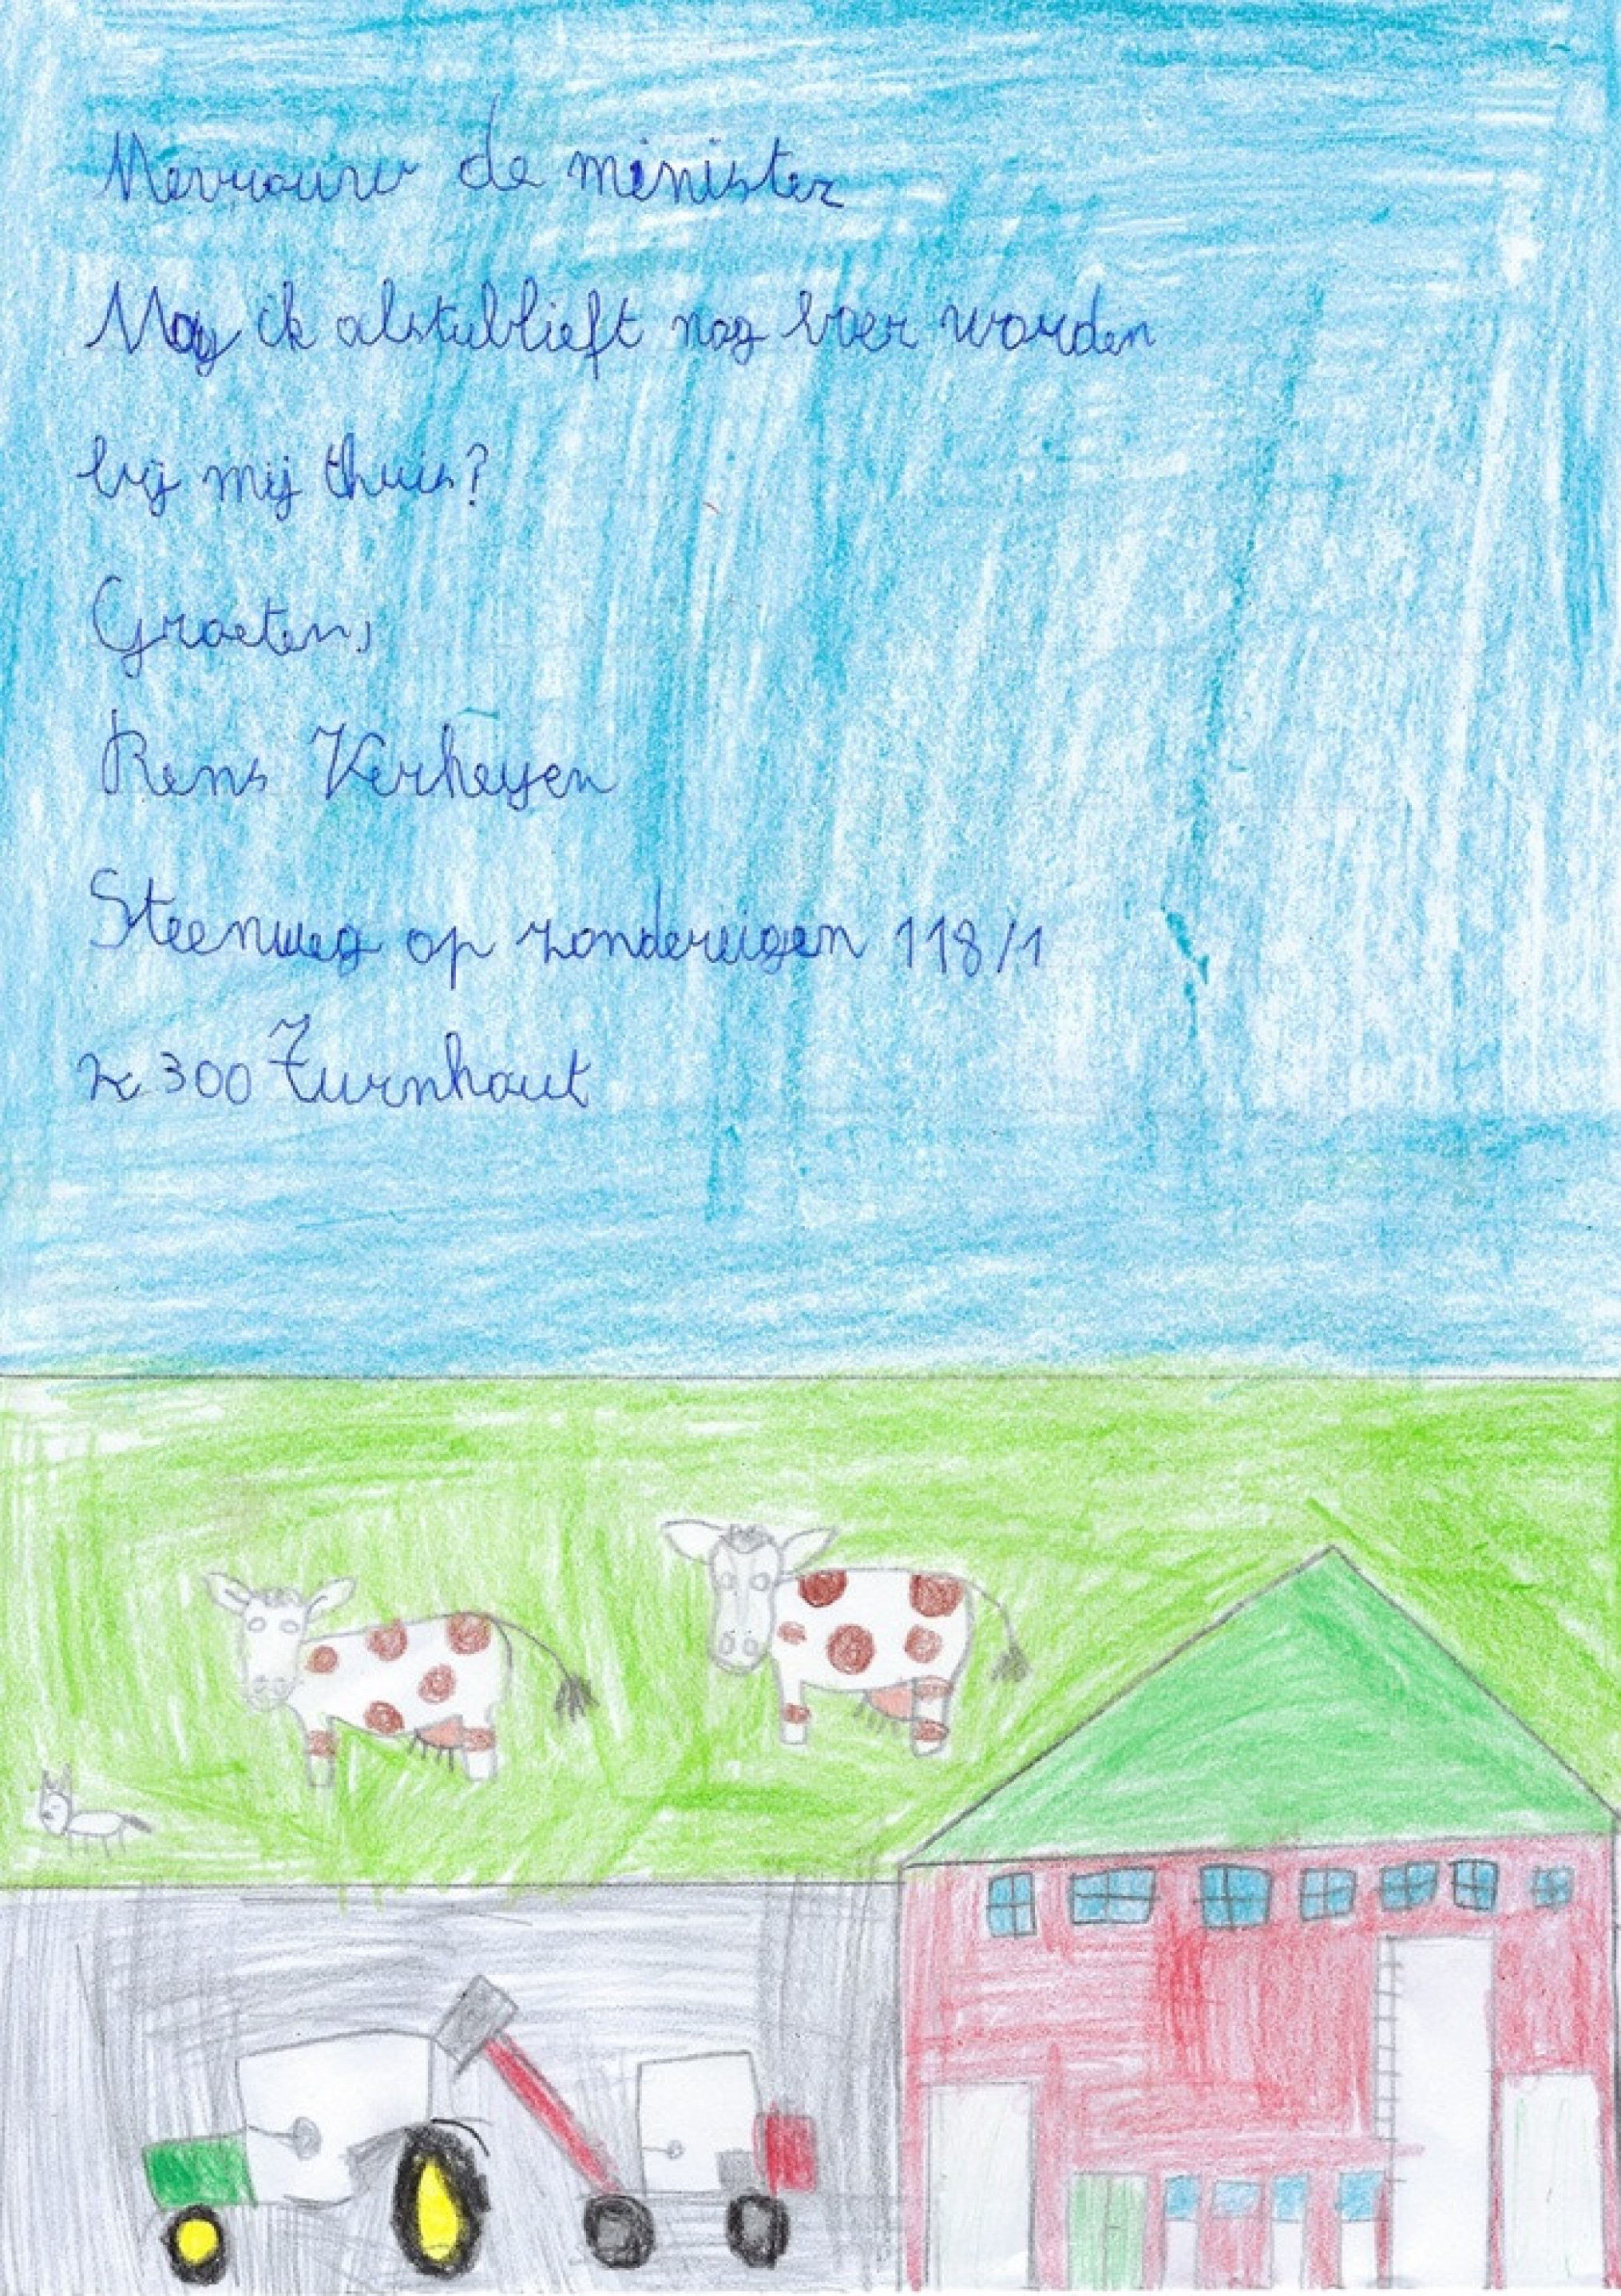 Mevrouw de minister
Mag ik alstublieft nog boer worden
bij mij thuis?
Groeten,
Rens Verheyen
Steenweg op zondereigen 118/1
2300 Turnhout